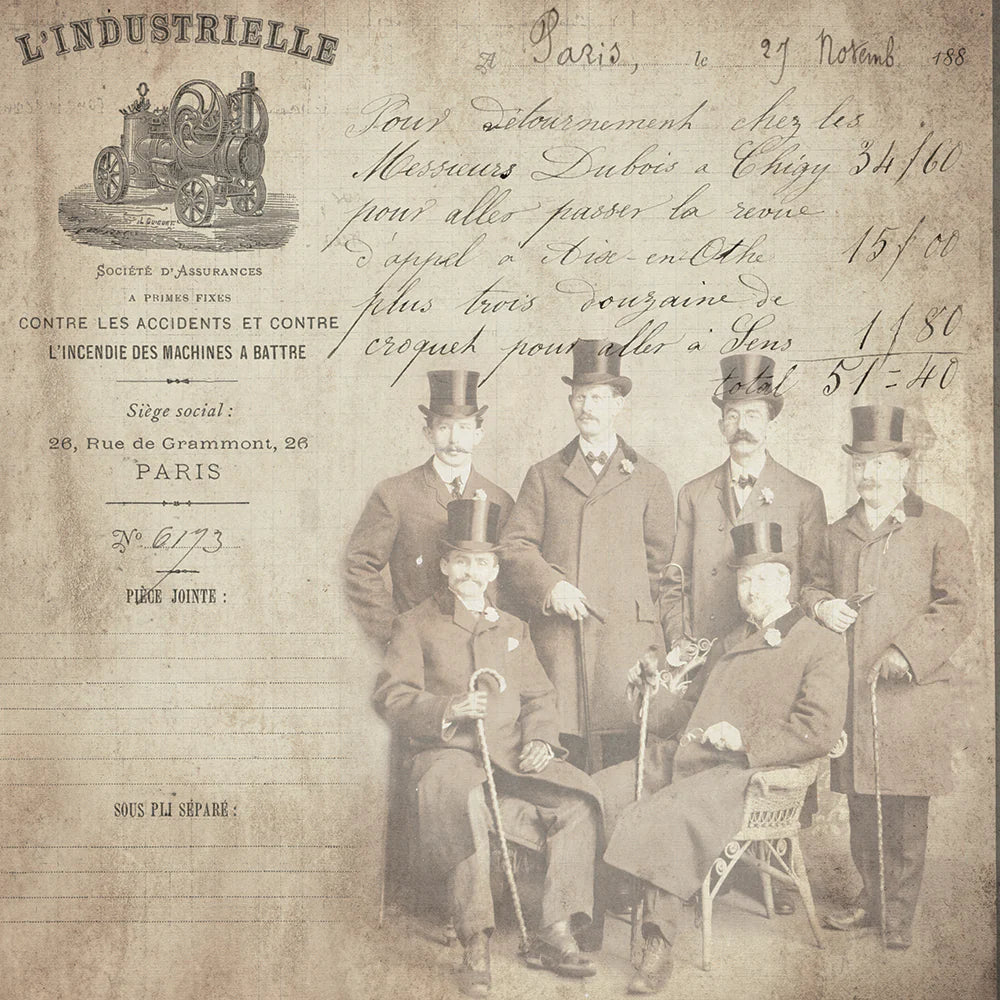 L'INDUSTRIELLE
A Paris, le 27 Novemb 188
Pour détournement chez les
Messieurs Dubois a Chigy 34/60
pour aller passer la revue
d'appel a Aix-en-Othe 15/00
plus trois douzaine de
croquet pour aller à Sens 1/80
total 51=40
SOCIÉTÉ D'ASSURANCES
A PRIMES FIXES
CONTRE LES ACCIDENTS ET CONTRE
L'INCENDIE DES MACHINES A BATTRE
Siège social :
26, Rue de Grammont, 26
PARIS
No 6173
PIÈCE JOINTE :
SOUS PLI SÉPARÉ :